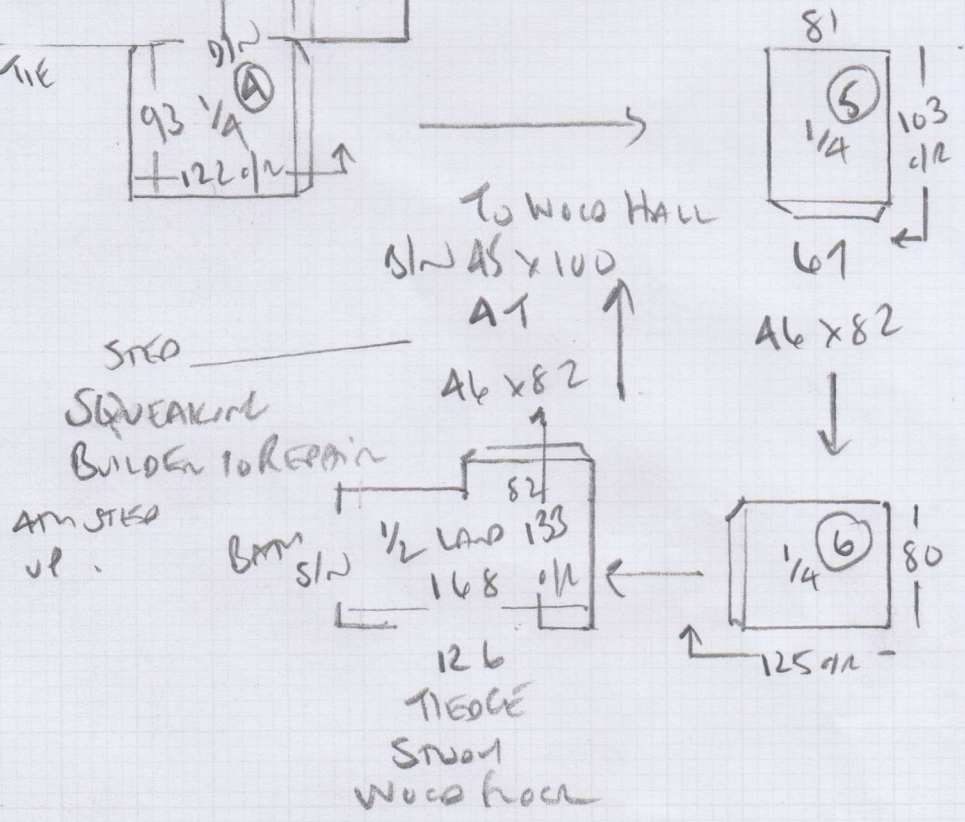 TIE
S/N
4
93 1/4
122 O/R
81
5
1/4
103
O/R
67
TO WOOD HALL
S/N 45 x 100
AT
46 x 82
46 x 82
STEP
SQUEAKING
BUILDER TO REPAIR
4TH STEP
UP.
BATH
S/N
1/2 LAND
82
133
O/R
168
126
T/EDGE
STUDY
WOOD FLOOR
6
1/4
80
125 O/R